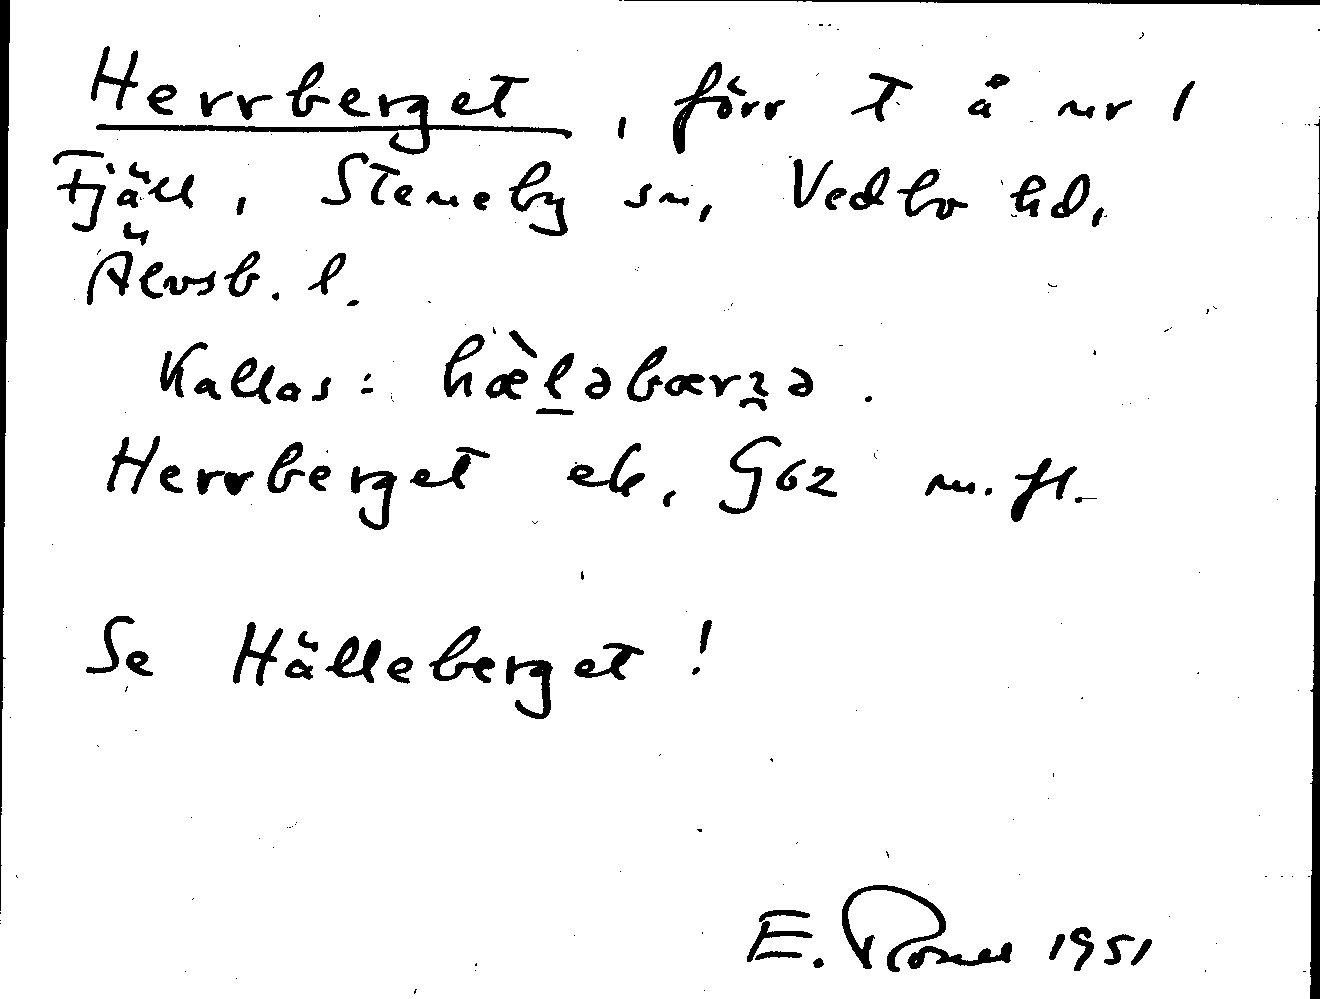 Herrberget, förr T å nr 1
Fjäll, Steneby sn, Vedbo hd,
Älvsb. l.
Kallas: hæ̀l̠əbærʒə.
Herrberget ek. G62 m. fl.
Se Hälleberget!
E. 1951